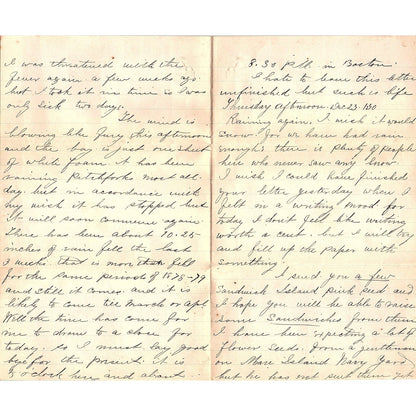 I was threatened with the
fever again a few weeks ago
but I took it in time & was
only sick two days.
The wind is
blowing like fury this afternoon
and the bay is just one sheet
of white foam. it has been
raining Pitchforks most all
day. but in accordance with
my wish it has stopped but
It will soon commence again.
There has been about 10.25
inches of rain fell the last
3 weeks. that is more than fell
for the same period of 1878-79
and still it comes. and it is
likely to come till March or Apl.
Well the time has come for
me to draw to a close for
today. so I must say good
bye for the present. it is
5 o'clock here and about
8.30 P.M. in Boston.
I hate to leave this letter
unfinished but such is life
Thursday afternoon Dec 23. '80
Raining again. I wish it would
snow for we have had rain
enough. there is plenty of people
here who never saw any snow
I wish I could have finished
your letter yesterday when I
felt in a writing mood for
today I don't feel like writing
worth a cent. but I will try
and fill up the paper with
something.
I send you a few
Sandwich Island pink seed and
I hope you will be able to raise
some Sandwiches from them
I have been expecting a lot of
flower seeds. from a gentleman
on Mare Island Navy Yard
but he has not sent them yet